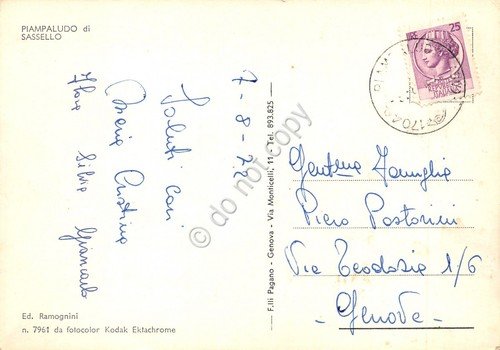 PIAMPALUDO di
SASSELLO
7-8-72
Saluti cari
Maria Cristina
Silvia Giancarlo
Ed. Ramognini
n. 7961 da fotocolor Kodak Ektachrome
F.lli Pagano - Genova - Via Monticelli, 11 - Tel. 893.825
25
Famiglia
Piero Pastorini
Via Teodosia 1/6
-Genova-
© do not copy